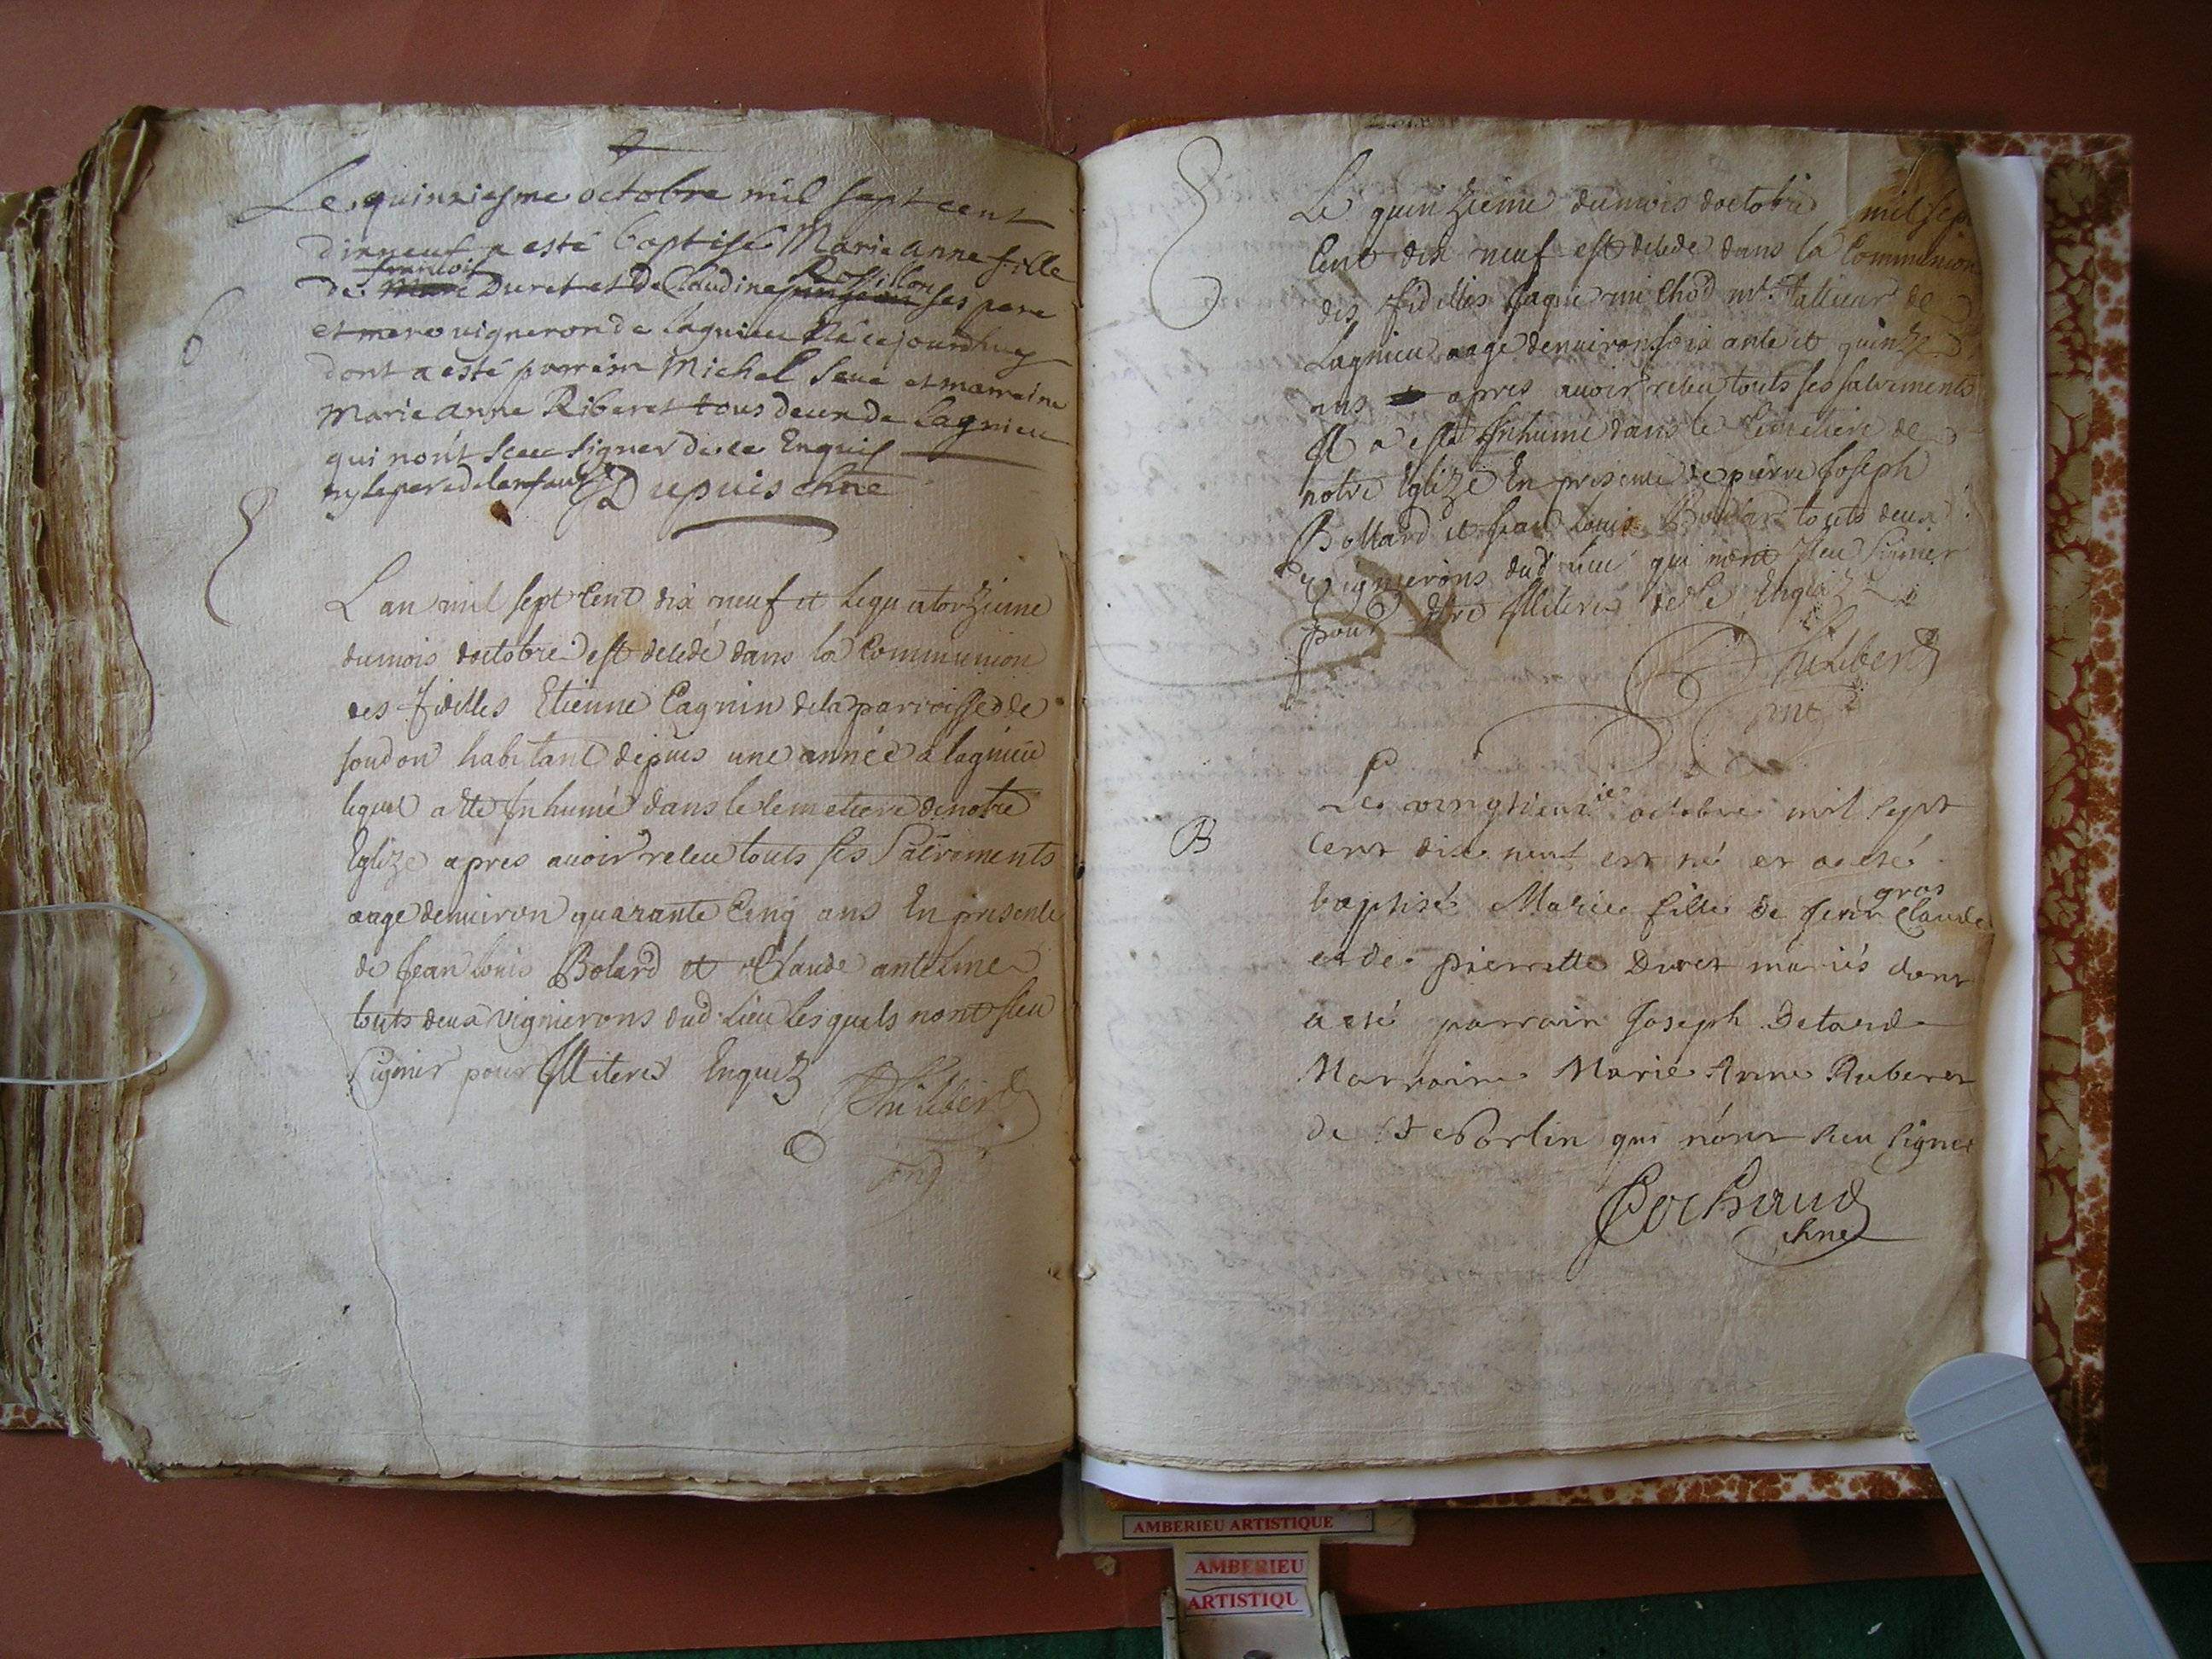 Le quinziesme octobre mil sept cent
dixneuf a esté baptisé Marie anne fille
francois Rossillon
de Duret et De Claudine ses pere
et mere vigneron de lagnieu né ce jourdhuy
dont a esté parrein Michel Seve et marreine
Marie anne Riberet tous deux de lagnieu
qui nont sceu signer de ce Enquis
ny le pere de lenfant Dupuis chne
Lan mil sept cent dix neuf et le quatorzieme
du mois doctobre est decedé dans la Communion
des fidelles Etienne Cagnin de la parroisse de
soudon habitant depuis une année a lagnieu
lequel a eté Inhumé dans le cemetiere de notre
Eglize apres auoir receu touts ses Sacrements
aage denuiron quarante Cinq ans En presence
de Jean Louis Bolard et Claude antelme
touts deux vignierons dud. Lieu Lesquels nont sceu
Signer pour Illiterés Enquiz
Philiberd
Le quinzieme du mois doctobre mil sep
Cent dix neuf est decede dans la Communion
des fidelles Jaque michod mr. Tallieur de
Lagnieu aage denuiron soixante et quinze
ans apres auoir receu touts ses sacrements
Il a esté Inhumé dans le Cimetiere de
notre Eglize En presence de pierre Joseph
Bollard et Jean Louis touts deux
Vignierons dud lieu qui nont sceu Signer
pour Etre Illiteres de ce Enquiz
Philiberd
Le octobre mil sept
Cent dix neuf est né et a esté
gros
baptisé Marie fille de Jean Claude
et de pierrette Duret mariés dont
a esté parrain Joseph Betard
Marraine Marie Anne Ruberet
de St Sorlin qui nont sceu signer
Cochaud
chne
B
AMBERIEU ARTISTIQUE
AMBERIEU
ARTISTIQU